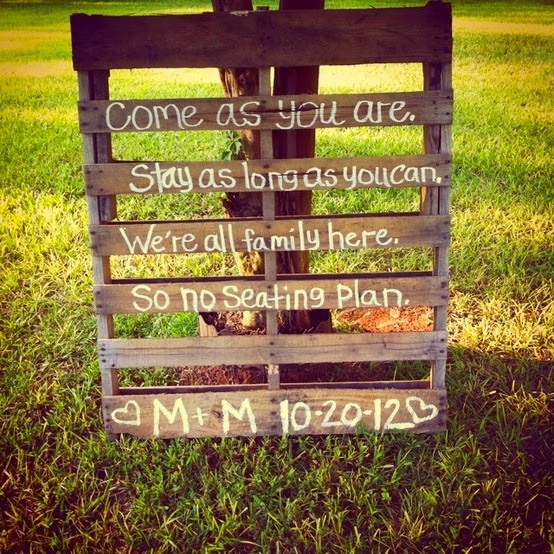 Come as you are.
Stay as long as you can.
We're all family here.
So no Seating Plan.
M + M 10-20-12